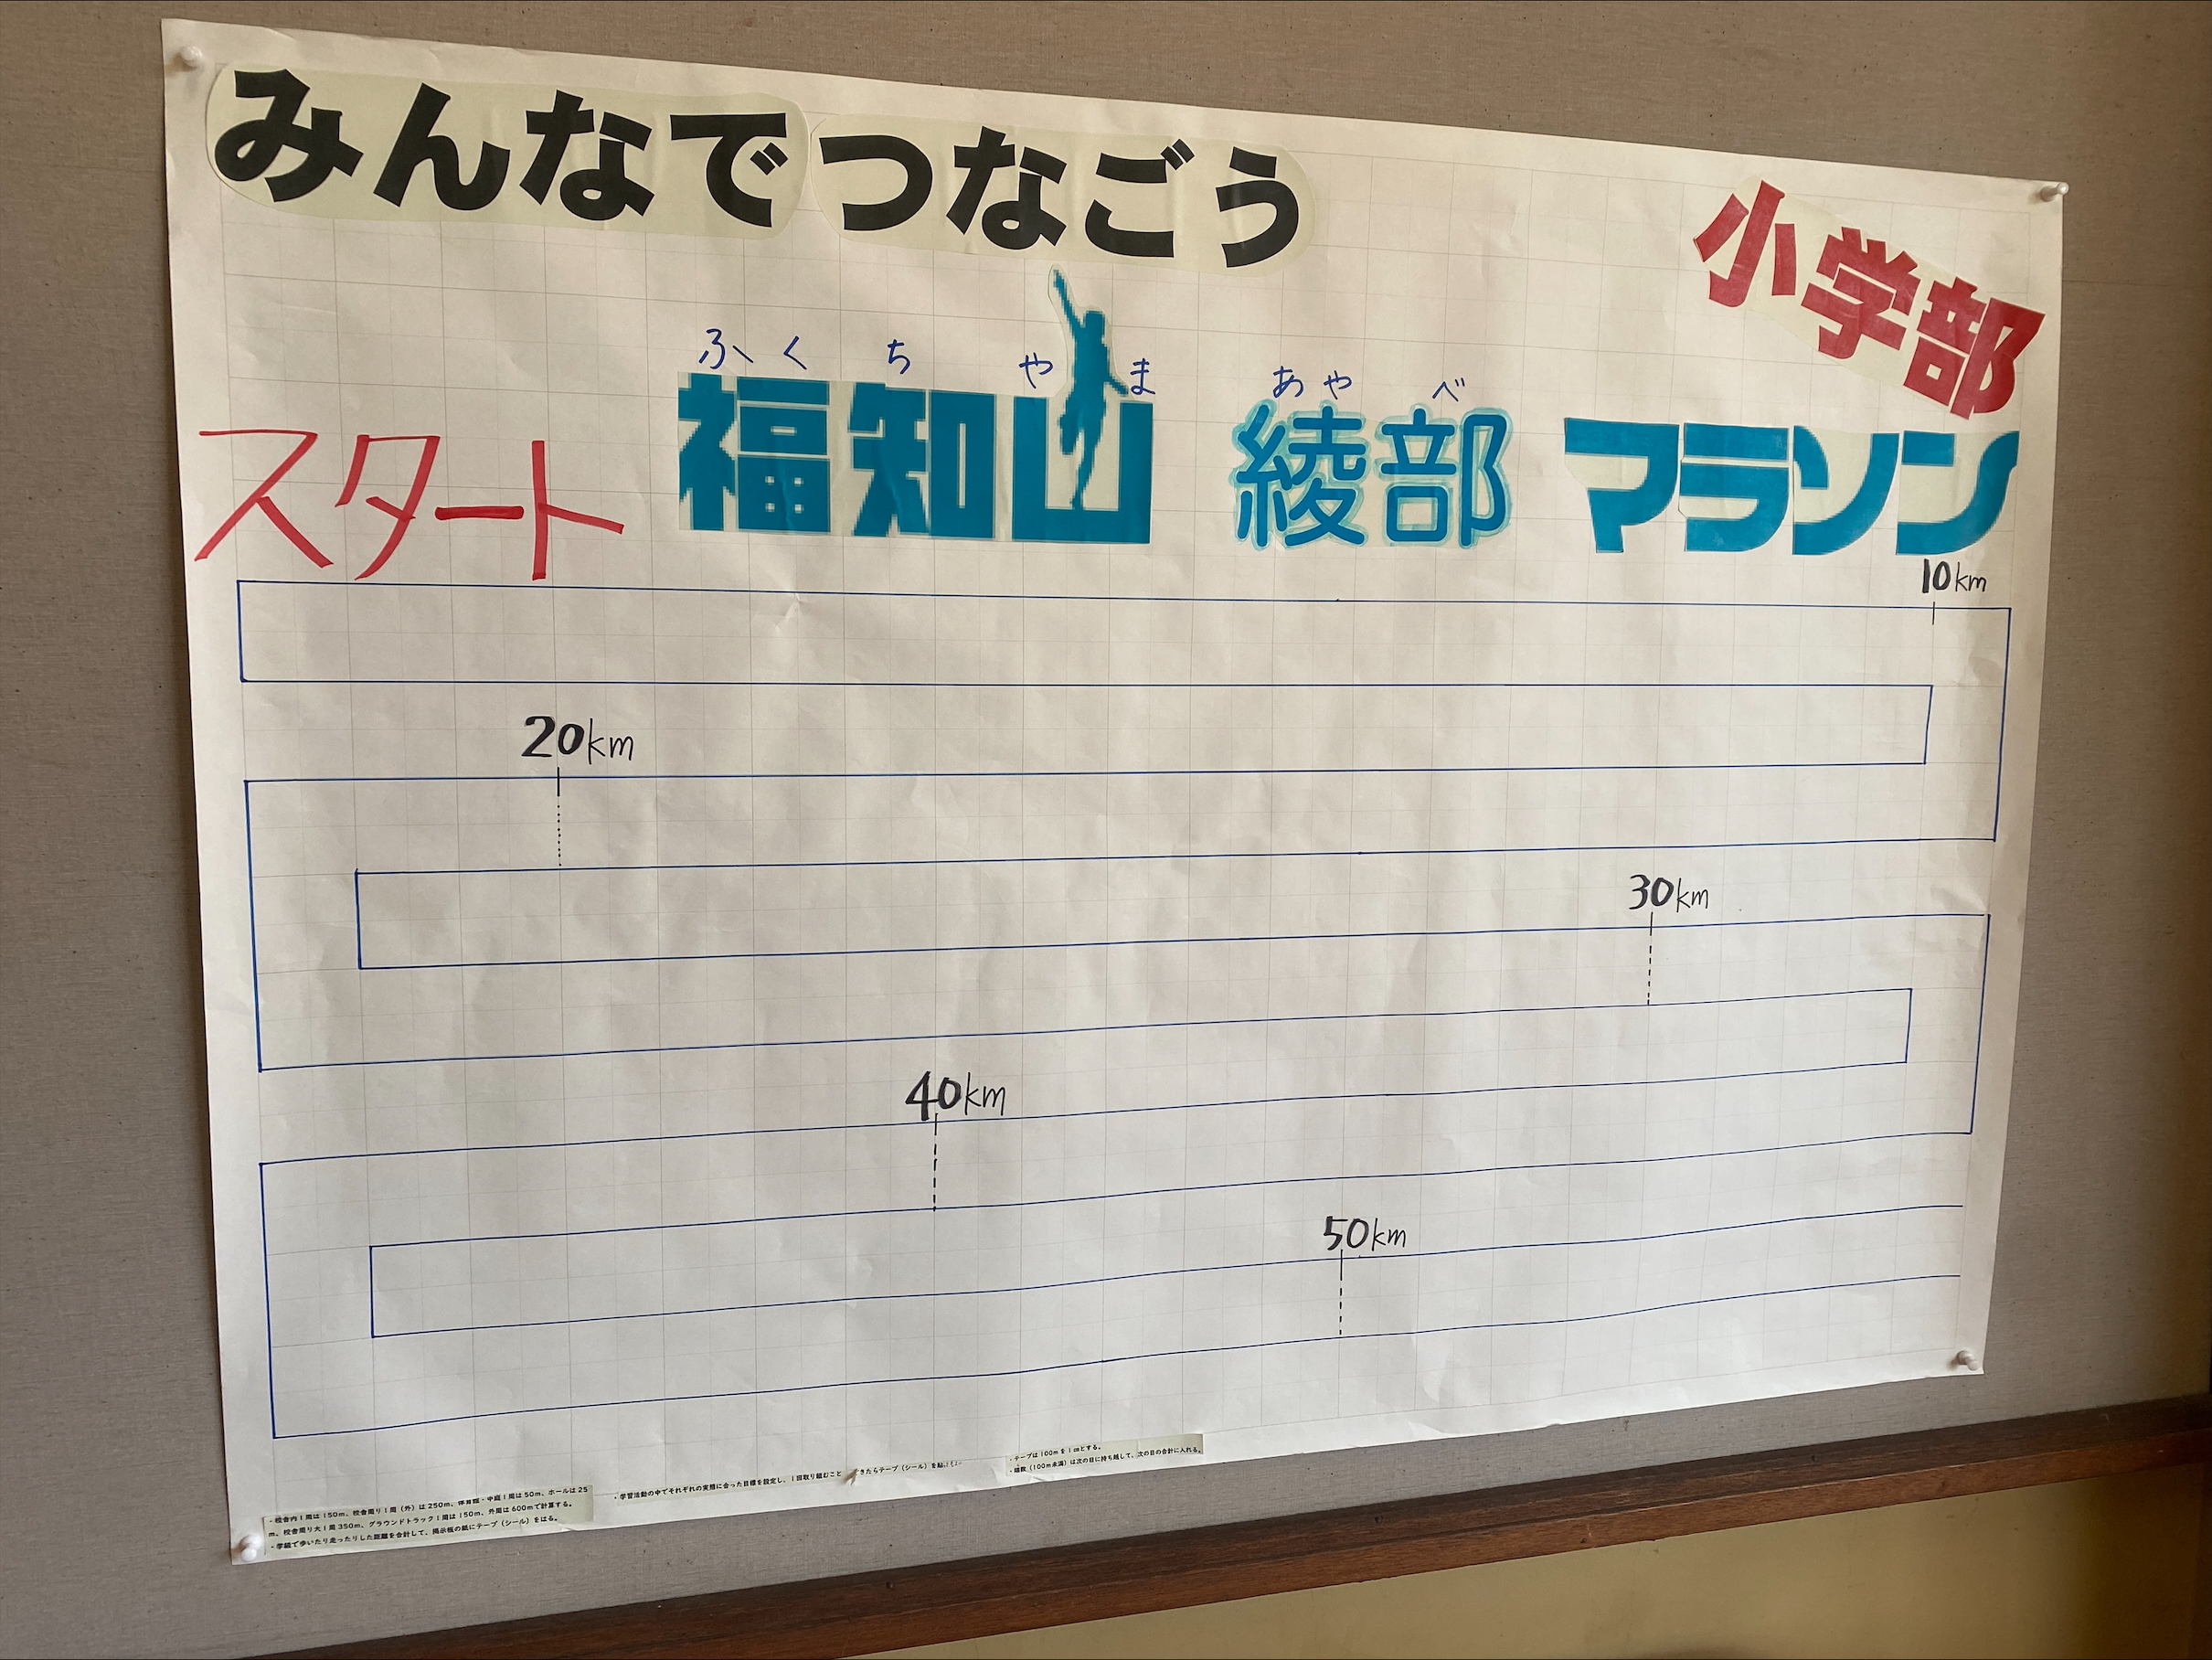 みんなでつなごう
小学部
ふくちやま あやべ
スタート 福知山 綾部 マラソン
10km
20km
30km
40km
50km
・テープは100mを1cmとする。
・端数(100m未満)は次の日に持ち越して、次の日の合計に入れる。
・学習活動の中でそれぞれの実態に合った目標を設定し、1回取り組むこと きたらテープ(シール)を貼
・校舎内1周は150m、校舎周り1周(外)は250m、体育館・中庭1周は50m、ホールは25
m、校舎周り大1周350m、グラウンドトラック1周は150m、外周は600mで計算する。
・学級で歩いたり走ったりした距離を合計して、掲示板の紙にテープ(シール)をはる。